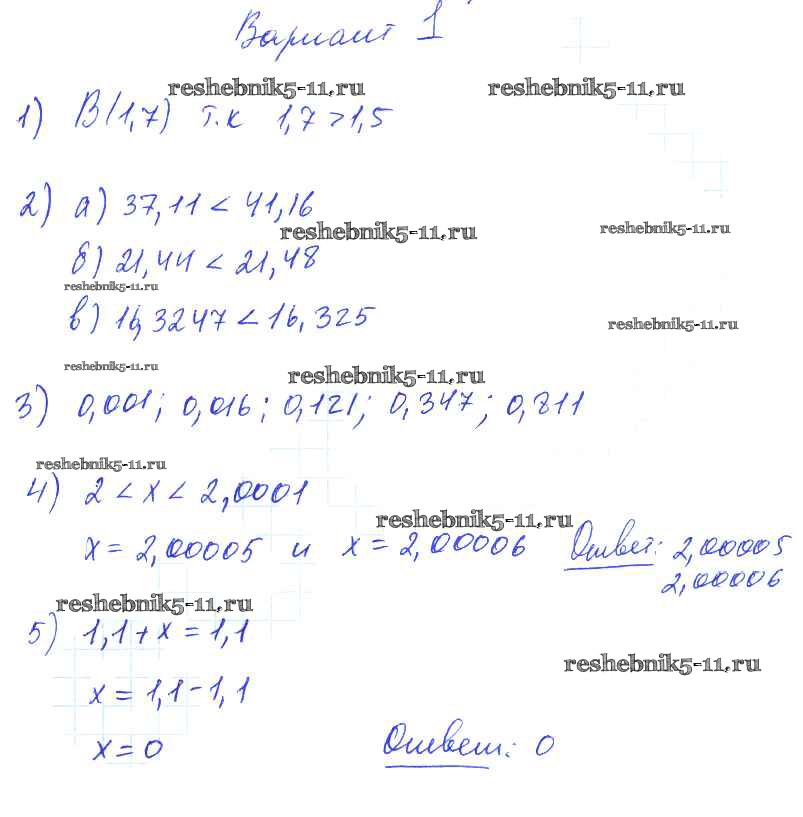 Вариант 1
reshebnik5-11.ru reshebnik5-11.ru
1) В(1,7) т.к 1,7 > 1,5
2) а) 37,11 < 41,16
reshebnik5-11.ru reshebnik5-11.ru
б) 21,44 < 21,48
reshebnik5-11.ru
в) 16,3247 < 16,325
reshebnik5-11.ru
reshebnik5-11.ru reshebnik5-11.ru
3) 0,001; 0,016; 0,121; 0,347; 0,811
reshebnik5-11.ru
4) 2 < x < 2,0001
reshebnik5-11.ru
x = 2,00005 и x = 2,00006 Ответ: 2,00005
2,00006
reshebnik5-11.ru
5) 1,1 + x = 1,1
reshebnik5-11.ru
x = 1,1 - 1,1
x = 0 Ответ: 0